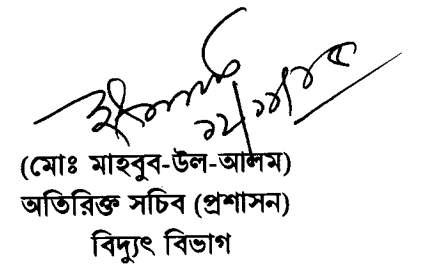 (মোঃ মাহবুব-উল-আলম)
অতিরিক্ত সচিব (প্রশাসন)
বিদ্যুৎ বিভাগ